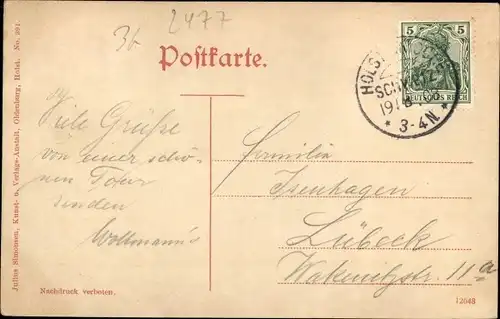 3b 2477
Postkarte.
5
DEUTSCHES REICH
HOLST.
SCHWEIZ
* 3-4N. *
Viele Grüße
von einer schö-
nen Tour
senden
Wollmann's
Familie
Isenhagen
Lübeck
Wakenitzstr. 11a
Julius Simonsen, Kunst- u. Verlags-Anstalt, Oldenburg, Holst. No. 291.
Nachdruck verboten.
12648